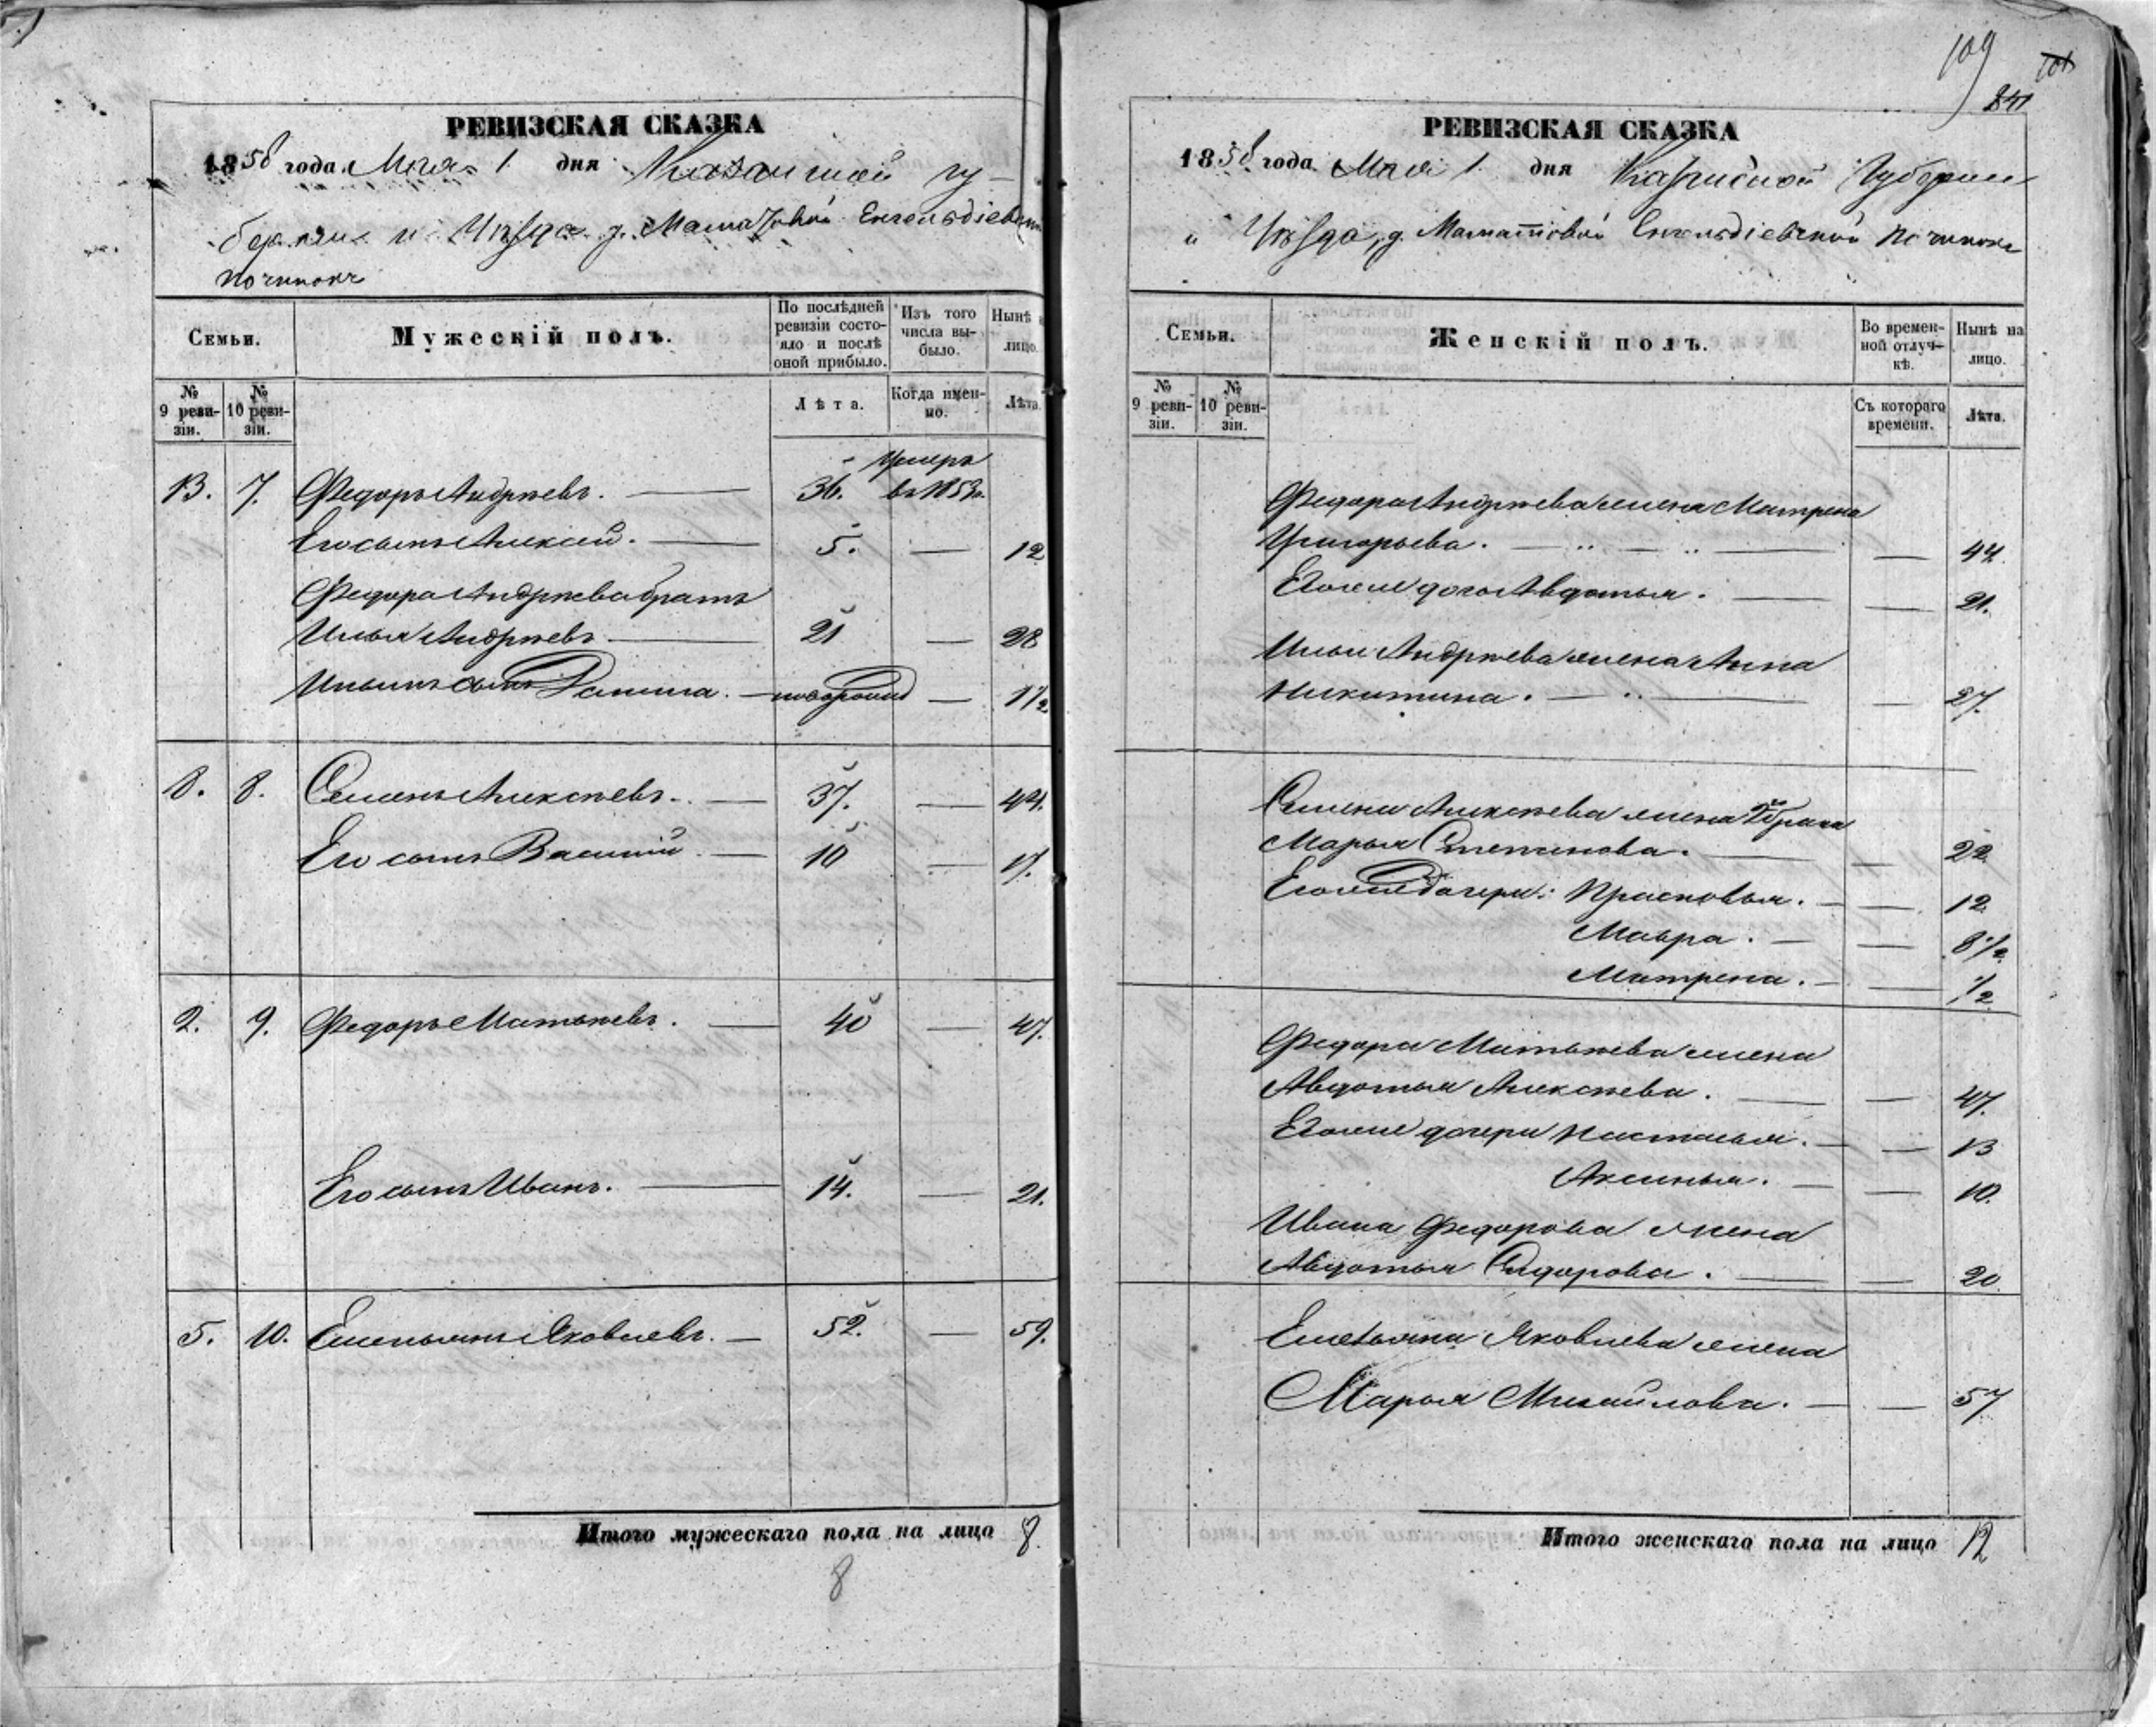 РЕВИЗСКАЯ СКАЗКА
1858 года Мая 1 дня Казанской гу-
бернии и Уѣзда д.
починокъ
Семьи.
Мужескій полъ.
По послѣдней ревизіи состо-
яло и послѣ оной прибыло.
Изъ того числа вы-
было.
Нынѣ
лицо.
№ 9 реви-
зіи.
№ 10 реви-
зіи.
Лѣта.
Когда имен-
но.
Лѣта.
умеръ
13. 7. Федоръ Андрѣевъ. — 36. въ 1853
Его сынъ Алексѣй. — 5. — 12
Федора Андрѣева братъ
Илья Андрѣевъ — 21 — 28
Ильинъ сынъ Данила. — новорожд — 1½
8. 8. Семенъ Алексѣевъ. — 37. — 44.
Его сынъ Василій — 10 — 17.
2. 9. Федоръ Матвѣевъ. — 40 — 47.
Его сынъ Иванъ. — 14. — 21.
5. 10. Емельянъ Яковлевъ. — 52. — 59.
Итого мужескаго пола на лицо 8.
8
109
РЕВИЗСКАЯ СКАЗКА
1858 года Мая 1 дня Казанской Губерніи
и Уѣзда, д. починокъ
Семьи.
Женскій полъ.
Во времен-
ной отлуч-
кѣ.
Нынѣ на
лицо.
№ 9 реви-
зіи.
№ 10 реви-
зіи.
Съ котораго
времени.
Лѣта.
Федора Андрѣева жена Матрена
Григорьева. — — 44.
Его же дочь Авдотья. — — 21.
Ильи Андрѣева жена Анна
Никитина. — — 27.
Семена Алексѣева жена 2 брака
Марья Степанова. — — 22
Его же дочери: Прасковья. — — 12
Мавра. — — 8½
Матрена. — — ½
Федора Матвѣева жена
Авдотья Алексѣева. — — 47.
Его же дочери Настасья. — — 13
Аксинья. — — 10.
Ивана Федорова жена
Авдотья Сидорова. — — 20
Емельяна Яковлева жена
Марья Михайлова. — — 57
Итого женскаго пола на лицо 12